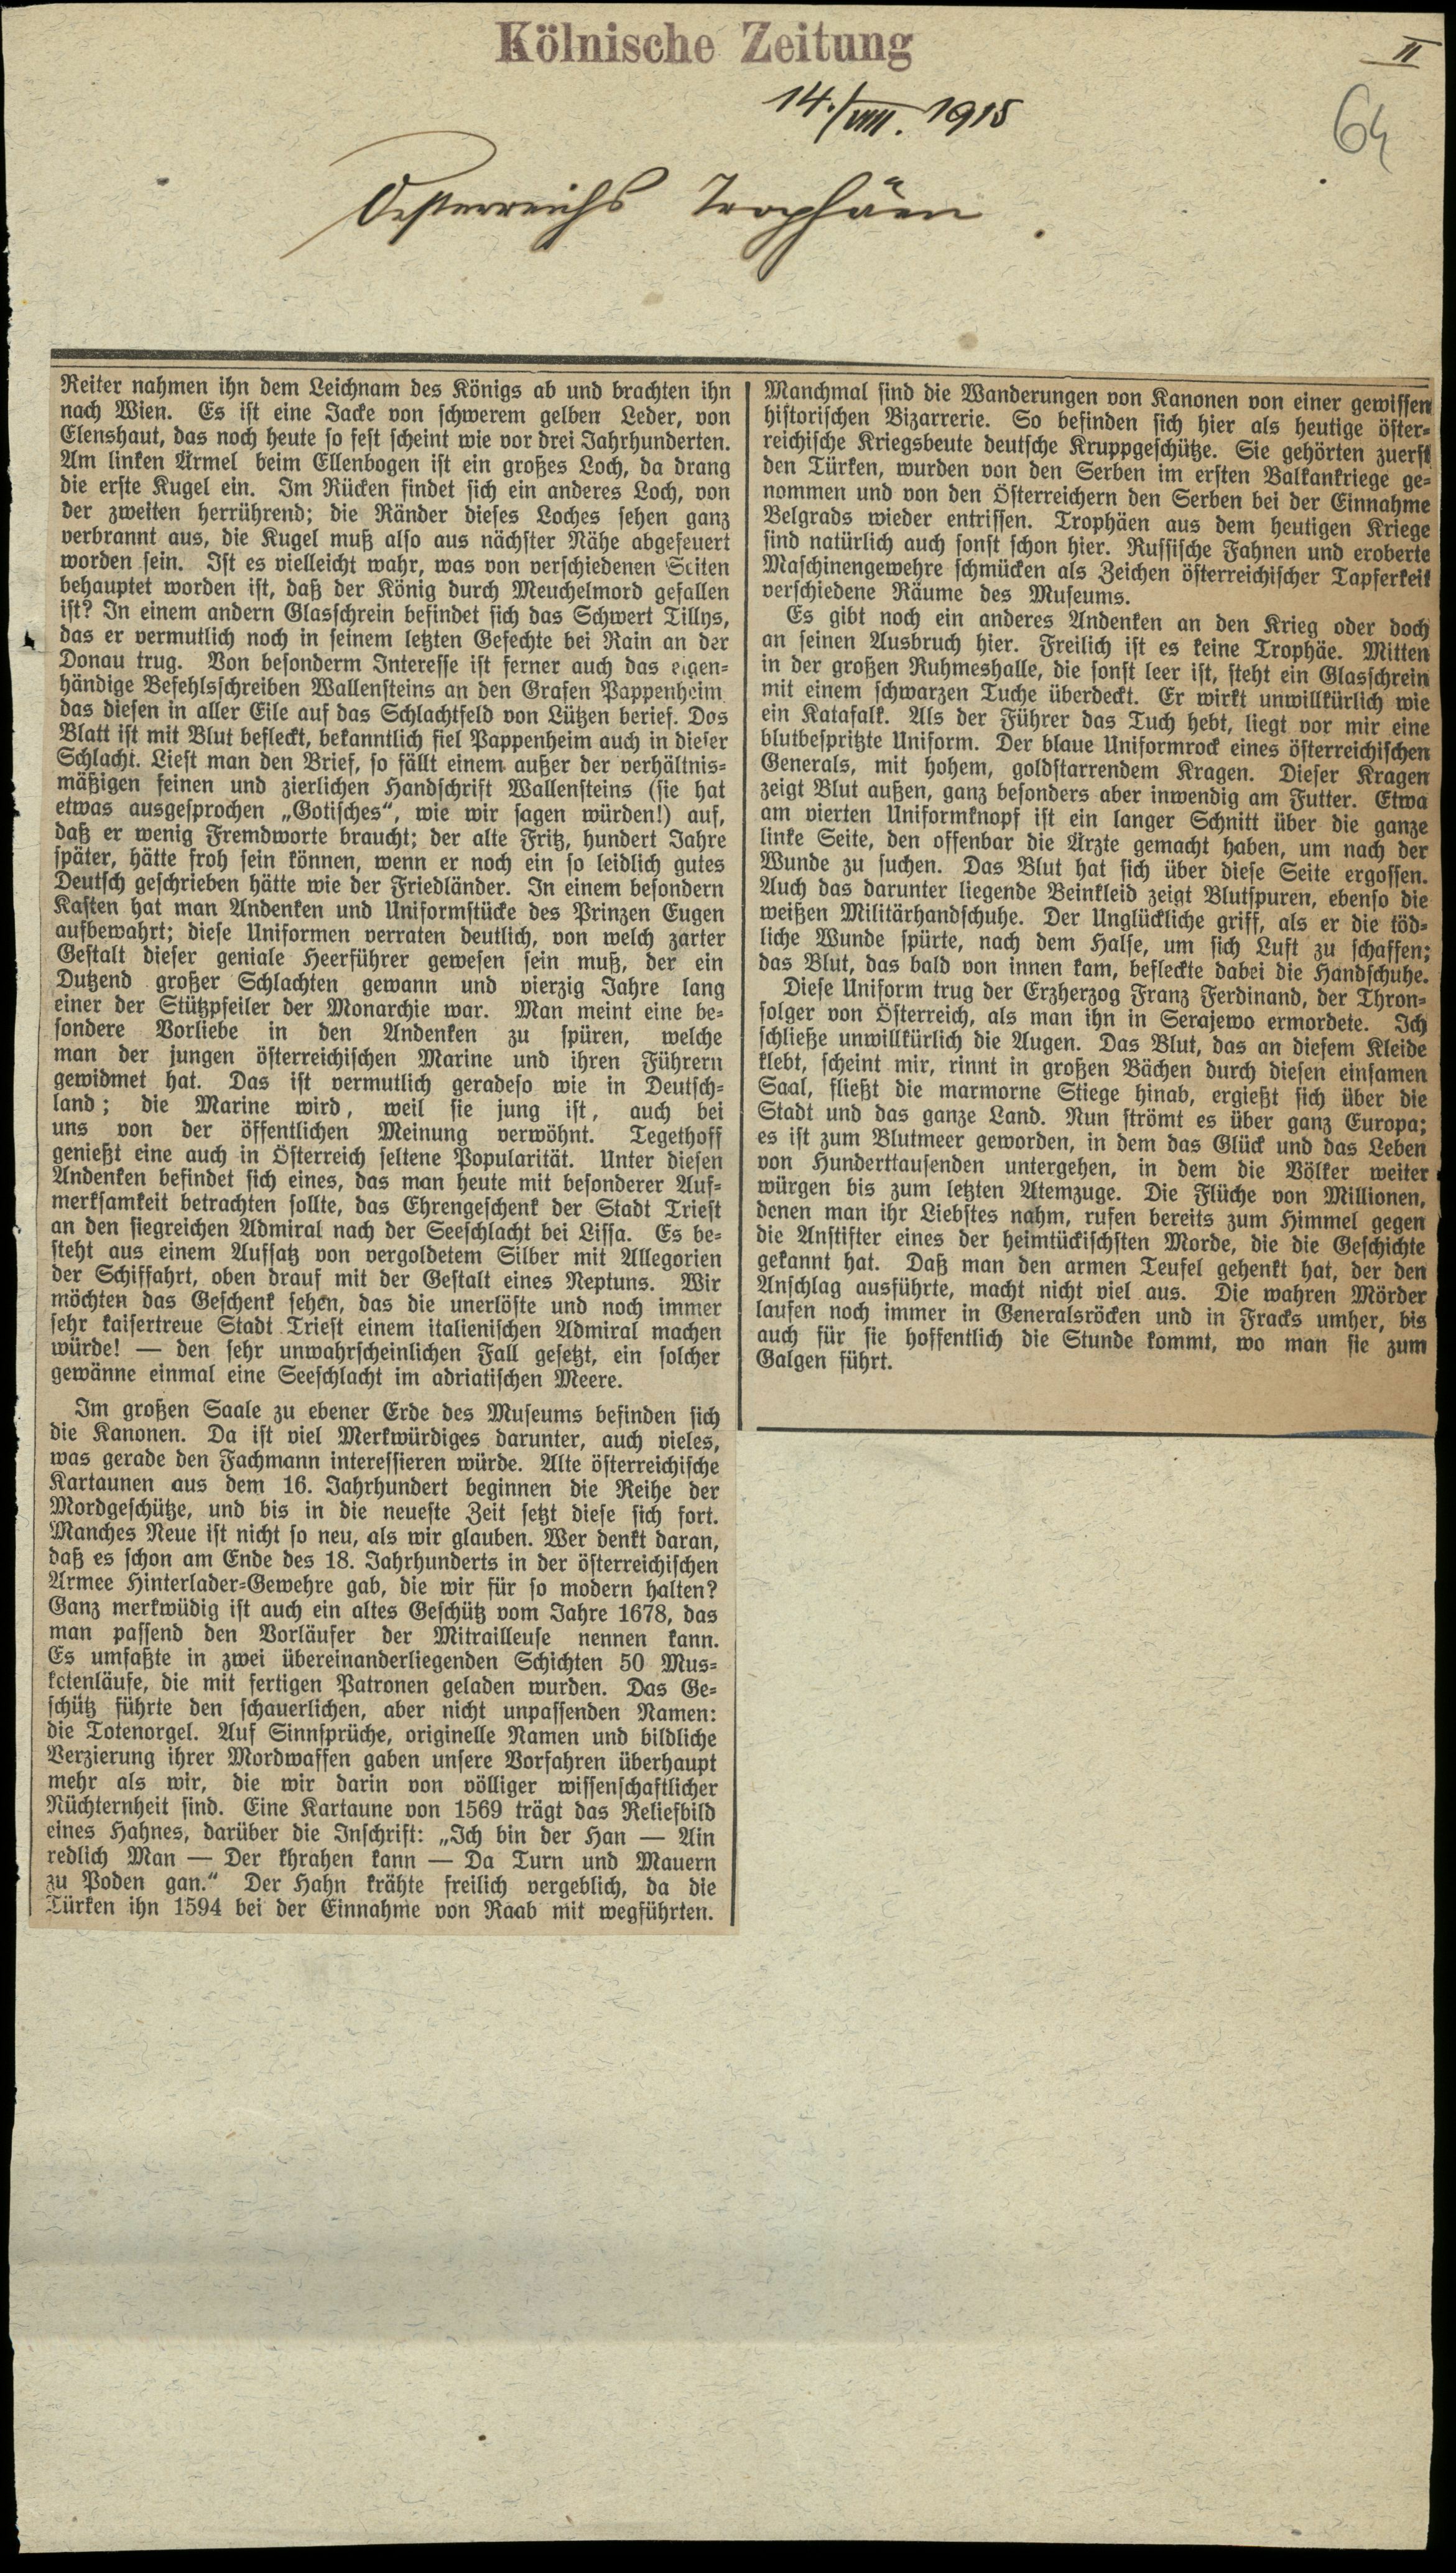 Kölnische Zeitung
II
14./VIII. 1915
64
Oesterreichs Trophäen.
Reiter nahmen ihn dem Leichnam des Königs ab und brachten ihn
nach Wien. Es ist eine Jacke von schwerem gelben Leder, von
Elenshaut, das noch heute so fest scheint wie vor drei Jahrhunderten.
Am linken Ärmel beim Ellenbogen ist ein großes Loch, da drang
die erste Kugel ein. Im Rücken findet sich ein anderes Loch, von
der zweiten herrührend; die Ränder dieses Loches sehen ganz
verbrannt aus, die Kugel muß also aus nächster Nähe abgefeuert
worden sein. Ist es vielleicht wahr, was von verschiedenen Seiten
behauptet worden ist, daß der König durch Meuchelmord gefallen
ist? In einem andern Glasschrein befindet sich das Schwert Tillys,
das er vermutlich noch in seinem letzten Gefechte bei Rain an der
Donau trug. Von besonderm Interesse ist ferner auch das eigen-
händige Befehlsschreiben Wallensteins an den Grafen Pappenheim
das diesen in aller Eile auf das Schlachtfeld von Lützen berief. Dos
Blatt ist mit Blut befleckt, bekanntlich fiel Pappenheim auch in dieser
Schlacht. Liest man den Brief, so fällt einem außer der verhältnis-
mäßigen feinen und zierlichen Handschrift Wallensteins (sie hat
etwas ausgesprochen „Gotisches“, wie wir sagen würden!) auf,
daß er wenig Fremdworte braucht; der alte Fritz, hundert Jahre
später, hätte froh sein können, wenn er noch ein so leidlich gutes
Deutsch geschrieben hätte wie der Friedländer. In einem besondern
Kasten hat man Andenken und Uniformstücke des Prinzen Eugen
aufbewahrt; diese Uniformen verraten deutlich, von welch zarter
Gestalt dieser geniale Heerführer gewesen sein muß, der ein
Dutzend großer Schlachten gewann und vierzig Jahre lang
einer der Stützpfeiler der Monarchie war. Man meint eine be-
sondere Vorliebe in den Andenken zu spüren, welche
man der jungen österreichischen Marine und ihren Führern
gewidmet hat. Das ist vermutlich geradeso wie in Deutsch-
land; die Marine wird, weil sie jung ist, auch bei
uns von der öffentlichen Meinung verwöhnt. Tegethoff
genießt eine auch in Österreich seltene Popularität. Unter diesen
Andenken befindet sich eines, das man heute mit besonderer Auf-
merksamkeit betrachten sollte, das Ehrengeschenk der Stadt Triest
an den siegreichen Admiral nach der Seeschlacht bei Lissa. Es be-
steht aus einem Aufsatz von vergoldetem Silber mit Allegorien
der Schiffahrt, oben drauf mit der Gestalt eines Neptuns. Wir
möchten das Geschenk sehen, das die unerlöste und noch immer
sehr kaisertreue Stadt Triest einem italienischen Admiral machen
würde! — den sehr unwahrscheinlichen Fall gesetzt, ein solcher
gewänne einmal eine Seeschlacht im adriatischen Meere.
Im großen Saale zu ebener Erde des Museums befinden sich
die Kanonen. Da ist viel Merkwürdiges darunter, auch vieles,
was gerade den Fachmann interessieren würde. Alte österreichische
Kartaunen aus dem 16. Jahrhundert beginnen die Reihe der
Mordgeschütze, und bis in die neueste Zeit setzt diese sich fort.
Manches Neue ist nicht so neu, als wir glauben. Wer denkt daran,
daß es schon am Ende des 18. Jahrhunderts in der österreichischen
Armee Hinterlader-Gewehre gab, die wir für so modern halten?
Ganz merkwüdig ist auch ein altes Geschütz vom Jahre 1678, das
man passend den Vorläufer der Mitrailleuse nennen kann.
Es umfaßte in zwei übereinanderliegenden Schichten 50 Mus-
ketenläufe, die mit fertigen Patronen geladen wurden. Das Ge-
schütz führte den schauerlichen, aber nicht unpassenden Namen:
die Totenorgel. Auf Sinnsprüche, originelle Namen und bildliche
Verzierung ihrer Mordwaffen gaben unsere Vorfahren überhaupt
mehr als wir, die wir darin von völliger wissenschaftlicher
Nüchternheit sind. Eine Kartaune von 1569 trägt das Reliefbild
eines Hahnes, darüber die Inschrift: „Ich bin der Han — Ain
redlich Man — Der khrahen kann — Da Turn und Mauern
zu Poden gan.“ Der Hahn krähte freilich vergeblich, da die
Türken ihn 1594 bei der Einnahme von Raab mit wegführten.
Manchmal sind die Wanderungen von Kanonen von einer gewissen
historischen Bizarrerie. So befinden sich hier als heutige öster-
reichische Kriegsbeute deutsche Kruppgeschütze. Sie gehörten zuerst
den Türken, wurden von den Serben im ersten Balkankriege ge-
nommen und von den Österreichern den Serben bei der Einnahme
Belgrads wieder entrissen. Trophäen aus dem heutigen Kriege
sind natürlich auch sonst schon hier. Russische Fahnen und eroberte
Maschinengewehre schmücken als Zeichen österreichischer Tapferkeit
verschiedene Räume des Museums.
Es gibt noch ein anderes Andenken an den Krieg oder doch
an seinen Ausbruch hier. Freilich ist es keine Trophäe. Mitten
in der großen Ruhmeshalle, die sonst leer ist, steht ein Glasschrein
mit einem schwarzen Tuche überdeckt. Er wirkt unwillkürlich wie
ein Katafalk. Als der Führer das Tuch hebt, liegt vor mir eine
blutbespritzte Uniform. Der blaue Uniformrock eines österreichischen
Generals, mit hohem, goldstarrendem Kragen. Dieser Kragen
zeigt Blut außen, ganz besonders aber inwendig am Futter. Etwa
am vierten Uniformknopf ist ein langer Schnitt über die ganze
linke Seite, den offenbar die Ärzte gemacht haben, um nach der
Wunde zu suchen. Das Blut hat sich über diese Seite ergossen.
Auch das darunter liegende Beinkleid zeigt Blutspuren, ebenso die
weißen Militärhandschuhe. Der Unglückliche griff, als er die töd-
liche Wunde spürte, nach dem Halse, um sich Luft zu schaffen;
das Blut, das bald von innen kam, befleckte dabei die Handschuhe.
Diese Uniform trug der Erzherzog Franz Ferdinand, der Thron-
folger von Österreich, als man ihn in Serajewo ermordete. Ich
schließe unwillkürlich die Augen. Das Blut, das an diesem Kleide
klebt, scheint mir, rinnt in großen Bächen durch diesen einsamen
Saal, fließt die marmorne Stiege hinab, ergießt sich über die
Stadt und das ganze Land. Nun strömt es über ganz Europa;
es ist zum Blutmeer geworden, in dem das Glück und das Leben
von Hunderttausenden untergehen, in dem die Völker weiter
würgen bis zum letzten Atemzuge. Die Flüche von Millionen,
denen man ihr Liebstes nahm, rufen bereits zum Himmel gegen
die Anstifter eines der heimtückischsten Morde, die die Geschichte
gekannt hat. Daß man den armen Teufel gehenkt hat, der den
Anschlag ausführte, macht nicht viel aus. Die wahren Mörder
laufen noch immer in Generalsröcken und in Fracks umher, bis
auch für sie hoffentlich die Stunde kommt, wo man sie zum
Galgen führt.